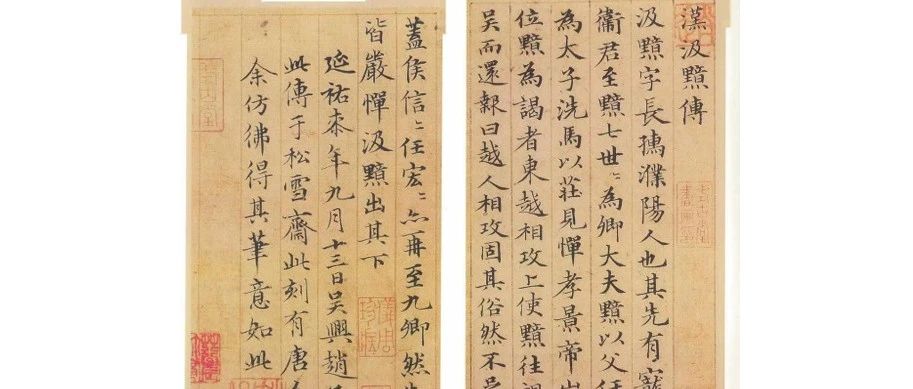 漢汲黯傳
汲黯字長孺濮陽人也其先有寵
衛君至黯七世〻為卿大夫黯以父任
為太子洗馬以莊見憚孝景帝
位黯為謁者東越相攻上使黯往
吳而還報曰越人相攻固其俗然不
蓋侯信〻任宏〻亦再至九卿然
皆嚴憚汲黯出其下
延祐柒年九月十三日吳興趙
此傳于松雪齋此刻有唐人
余仿彿得其筆意如此